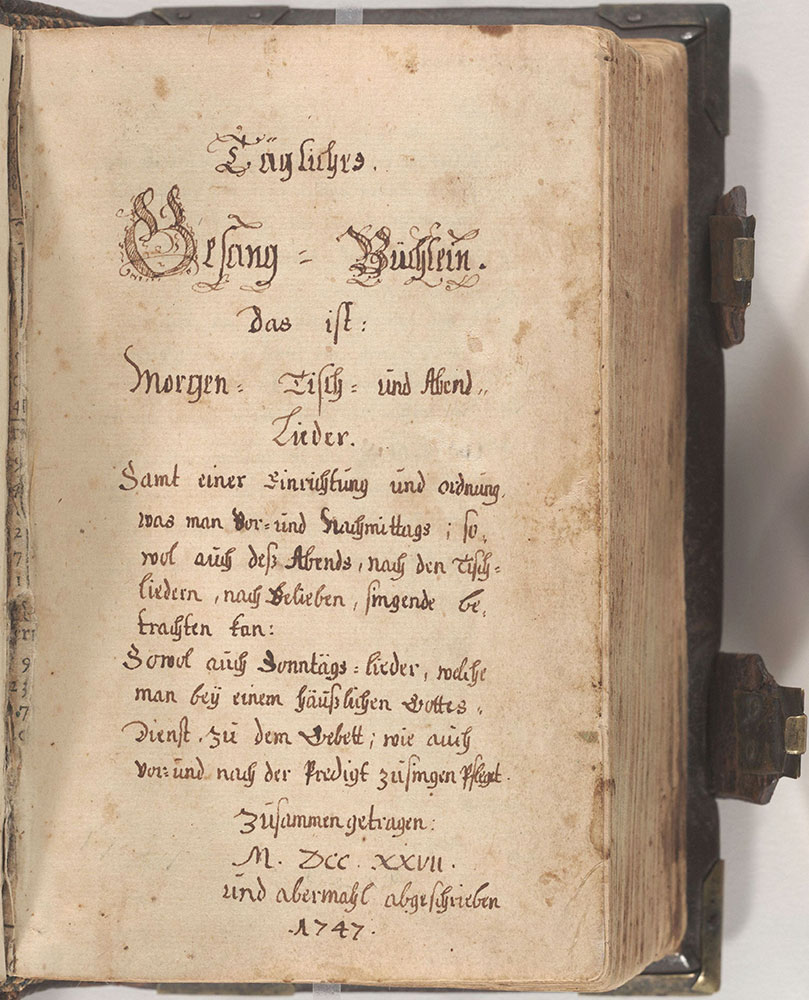 Tägliches.
Gesang = Büchlein.
Das ist:
Morgen = Tisch = und Abend,,
Lieder.
Samt einer Einrichtung und ordnung,
was man Vor= und Nachmittags; so,
wol auch deß Abends, nach den Tisch=
liedern, nach Belieben, singende be,
trachten kan:
Sowol auch Sonntägs=lieder, welche
man beÿ einem häußlichen Gottes,
Dienst, zu dem Gebett; wie auch
vor= und nach der Predigt zusingen Pfleget.
Zusammengetragen:
M. DCC. XXVII.
und abermahl abgeschrieben
.1747.